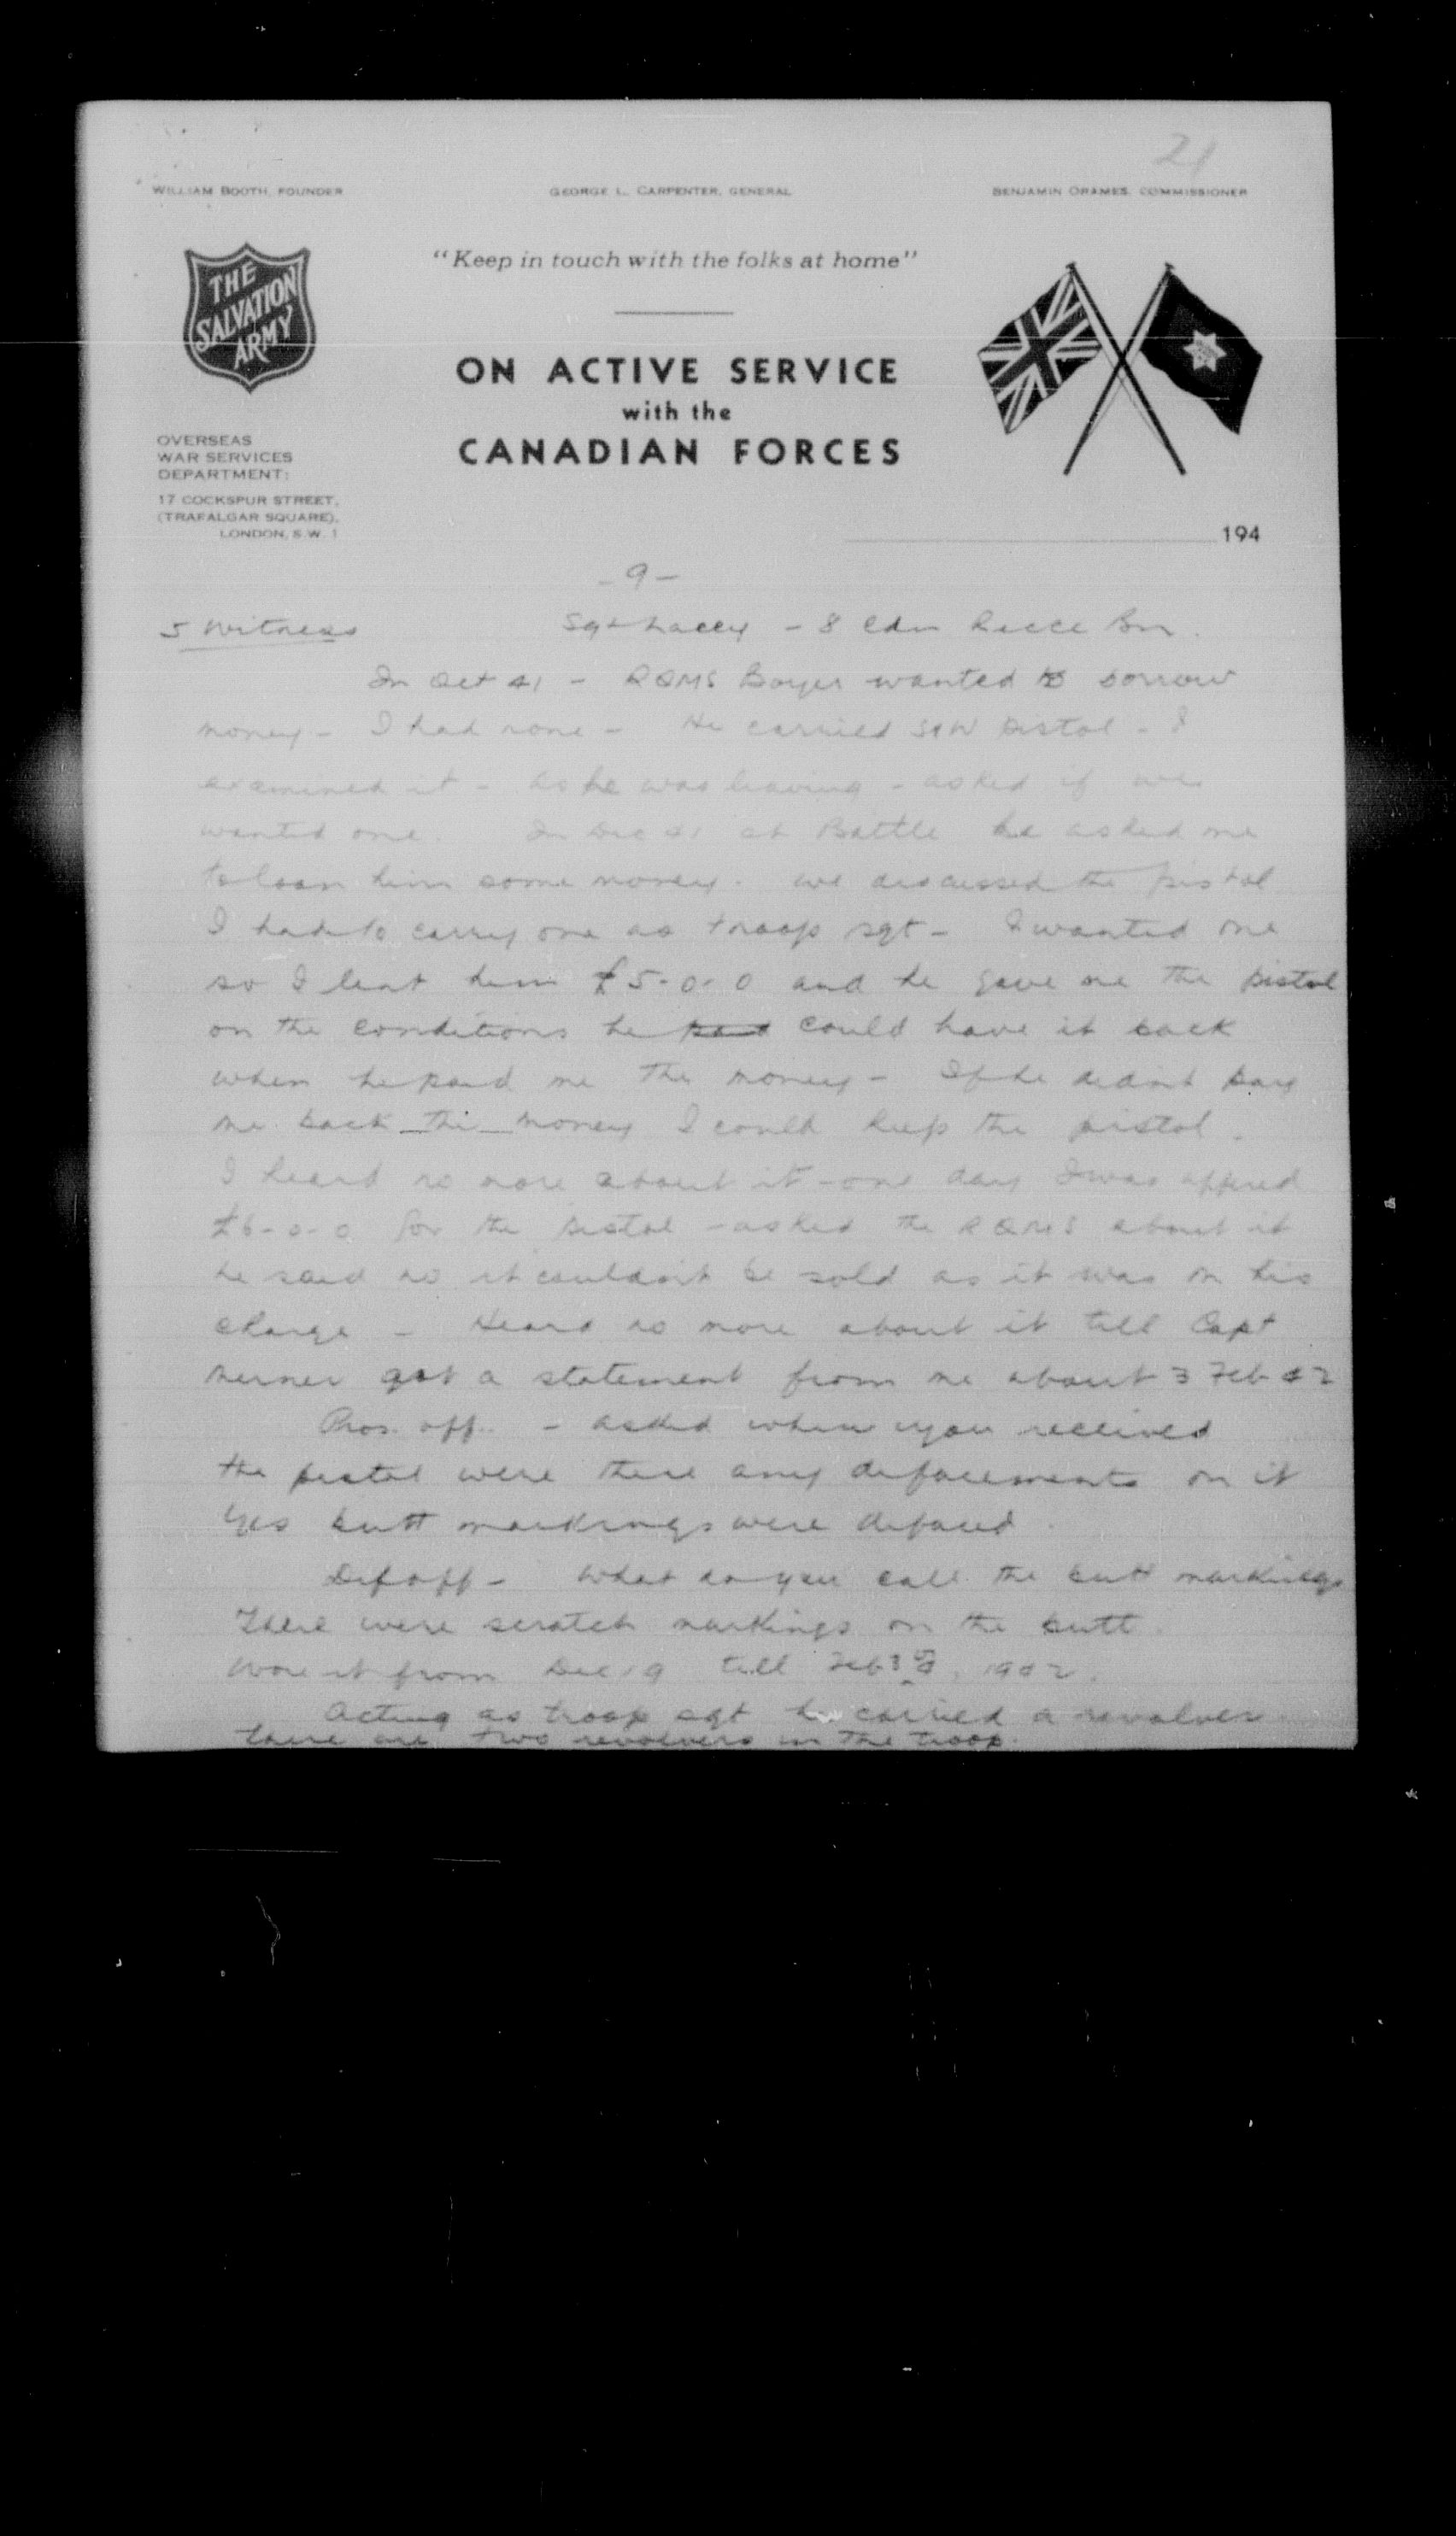 21
WILLIAM BOOTH, FOUNDER
GEORGE L. CARPENTER, GENERAL
BENJAMIN ORAMES, COMMISSIONER
THE
SALVATION
ARMY
"Keep in touch with the folks at home"
ON ACTIVE SERVICE
with the
CANADIAN FORCES
OVERSEAS
WAR SERVICES
DEPARTMENT:
17 COCKSPUR STREET,
(TRAFALGAR SQUARE),
LONDON, S.W. 1
194
- 9 -
5 Witness Sgt Lacey - 8 Cdn Recce Bn.
In Oct 41 - RQMS Boyer wanted to borrow
money - I had none - He carried S&W pistol - I
examined it - As he was leaving - asked if we
wanted one. In Dec 41 at Battle he asked me
to loan him some money. We discussed the pistol
I had to carry one as troop sgt - I wanted one
so I lent him £5-0-0 and he gave me the pistol
on the conditions he could have it back
when he paid me the money - If he didn't pay
me back the money I could keep the pistol.
I heard no more about it - one day I was offered
£6-0-0 for the pistol - asked the RQMS about it
he said no it couldn't be sold as it was on his
charge - Heard no more about it till Capt
got a statement from me about 3 Feb 42
Pros. off. - asked when you received
the pistol were there any defacements on it
Yes butt markings were defaced.
Def off - What do you call the butt markings
There were scratch markings on the butt.
Wore it from Dec 19 till Feb 3rd, 1942.
Acting as troop sgt he carried a revolver
there are two revolvers in the troop.